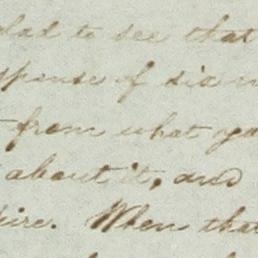 glad to see that
spense of six
from what you
about it, and
pire. When that